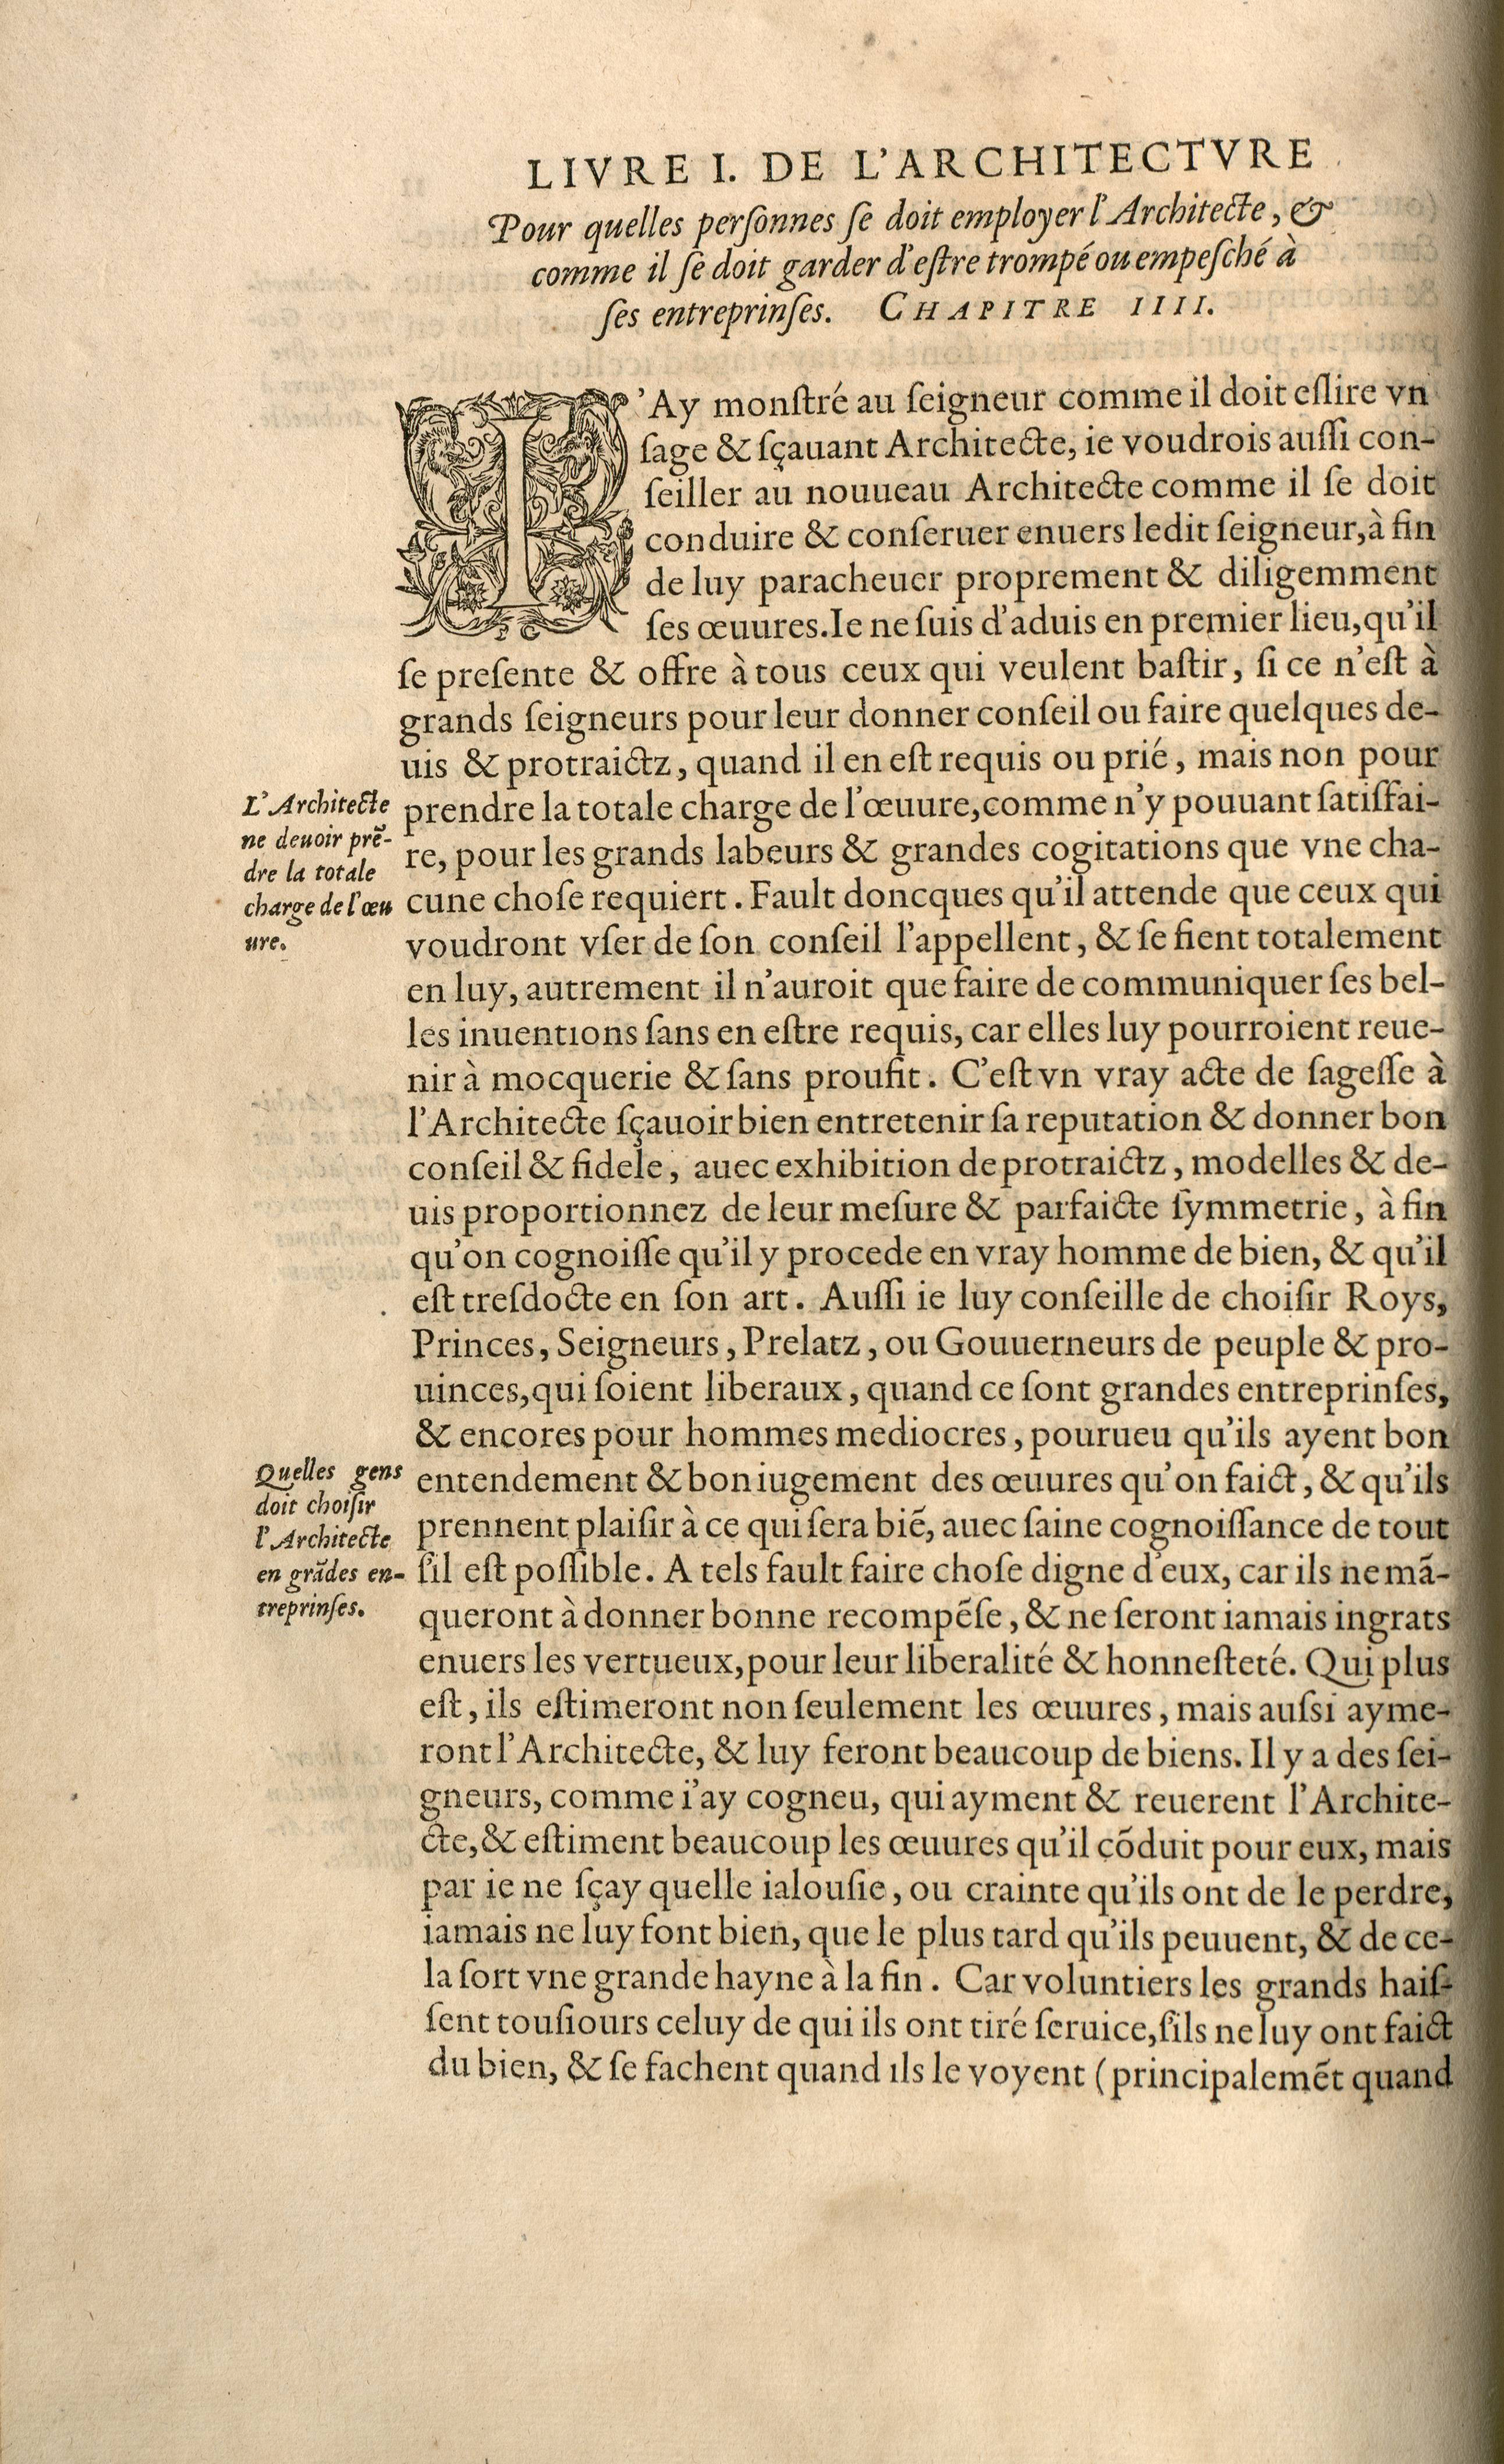 LIVRE I. DE L'ARCHITECTVRE
Pour quelles perſonnes ſe doit employer l'Architecte, &
comme il ſe doit garder d'eſtre trompé ou empeſché à
ſes entreprinſes. CHAPITRE IIII.
I'Ay monſtré au ſeigneur comme il doit eſlire vn
ſage & ſçauant Architecte, ie voudrois auſſi con-
ſeiller au nouueau Architecte comme il ſe doit
conduire & conſeruer enuers ledit ſeigneur, à fin
de luy paracheuer proprement & diligemment
ſes œuures. Ie ne ſuis d'aduis en premier lieu, qu'il
ſe preſente & offre à tous ceux qui veulent baſtir, ſi ce n'eſt à
grands ſeigneurs pour leur donner conſeil ou faire quelques de-
uis & protraictz, quand il en eſt requis ou prié, mais non pour
prendre la totale charge de l'œuure, comme n'y pouuant ſatiſfai-
re, pour les grands labeurs & grandes cogitations que vne cha-
cune choſe requiert. Fault doncques qu'il attende que ceux qui
voudront vſer de ſon conſeil l'appellent, & ſe fient totalement
en luy, autrement il n'auroit que faire de communiquer ſes bel-
les inuentions ſans en eſtre requis, car elles luy pourroient reue-
nir à mocquerie & ſans proufit. C'eſt vn vray acte de ſageſſe à
l'Architecte ſçauoir bien entretenir ſa reputation & donner bon
conſeil & fidele, auec exhibition de protraictz, modelles & de-
uis proportionnez de leur meſure & parfaicte ſymmetrie, à fin
qu'on cognoiſſe qu'il y procede en vray homme de bien, & qu'il
eſt treſdocte en ſon art. Auſſi ie luy conſeille de choiſir Roys,
Princes, Seigneurs, Prelatz, ou Gouuerneurs de peuple & pro-
uinces, qui ſoient liberaux, quand ce ſont grandes entreprinſes,
& encores pour hommes mediocres, pourueu qu'ils ayent bon
entendement & bon iugement des œuures qu'on faict, & qu'ils
prennent plaiſir à ce qui ſera biẽ, auec ſaine cognoiſſance de tout
ſ'il eſt poſſible. A tels fault faire choſe digne d'eux, car ils ne mã-
queront à donner bonne recompẽſe, & ne ſeront iamais ingrats
enuers les vertueux, pour leur liberalité & honneſteté. Qui plus
eſt, ils eſtimeront non ſeulement les œuures, mais auſsi ayme-
ront l'Architecte, & luy feront beaucoup de biens. Il y a des ſei-
gneurs, comme i'ay cogneu, qui ayment & reuerent l'Archite-
cte, & eſtiment beaucoup les œuures qu'il cõduit pour eux, mais
par ie ne ſçay quelle ialouſie, ou crainte qu'ils ont de le perdre,
iamais ne luy font bien, que le plus tard qu'ils peuuent, & de ce-
la ſort vne grande hayne à la fin. Car voluntiers les grands haiſ-
ſent touſiours celuy de qui ils ont tiré ſeruice, ſ'ils ne luy ont faict
du bien, & ſe fachent quand ils le voyent (principalemẽt quand
L'Architecte
ne deuoir prẽ-
dre la totale
charge de l'œu
ure.
Quelles gens
doit choiſir
l'Architecte
en grãdes en-
treprinſes.